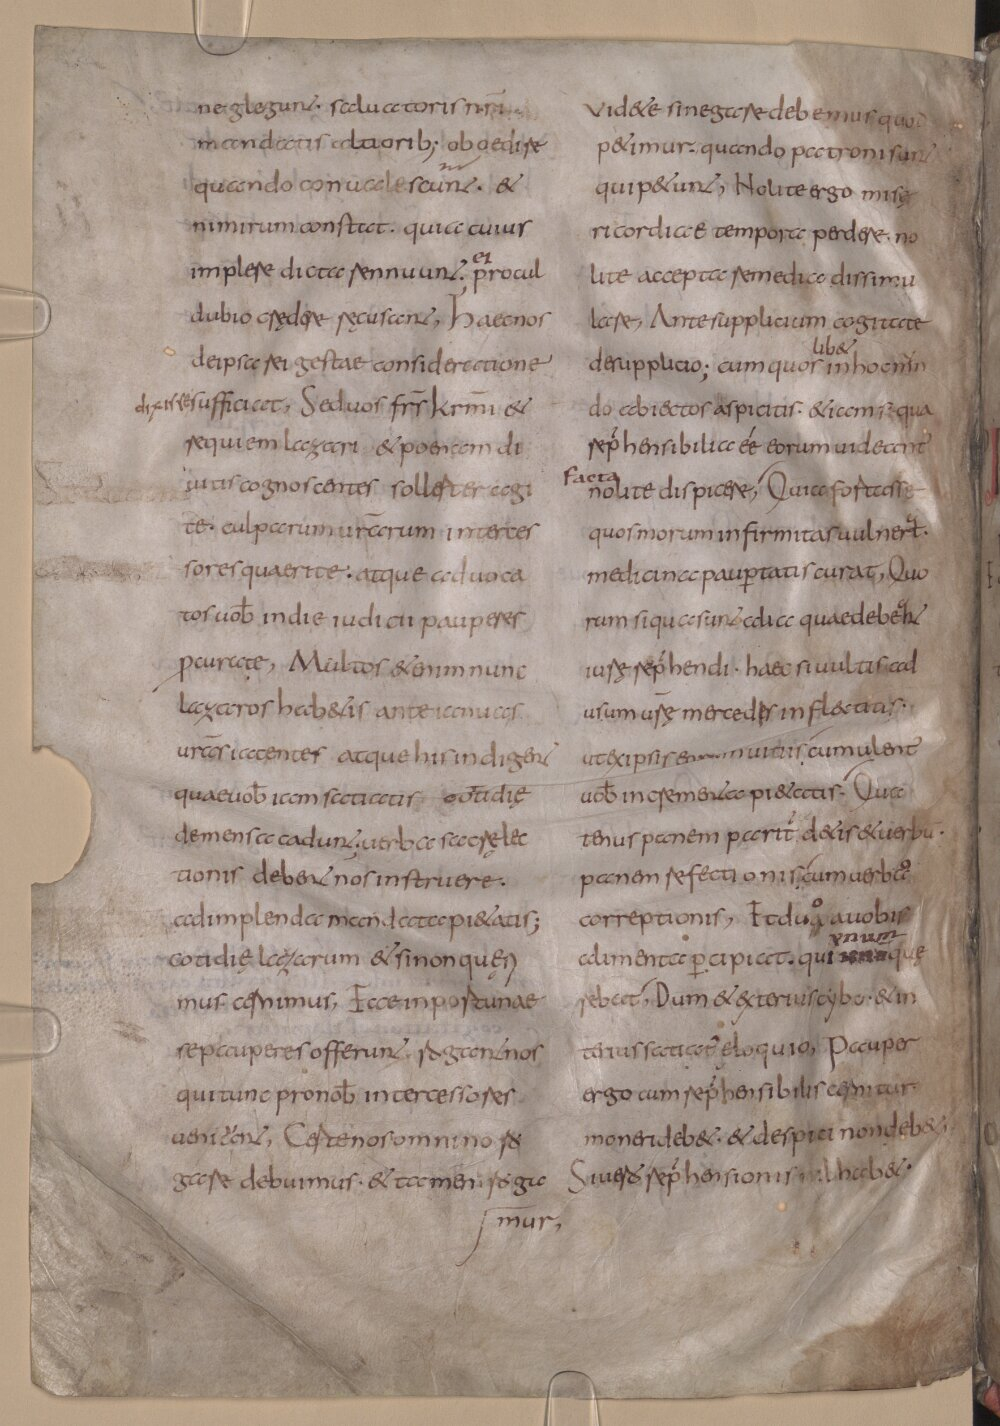 neglegunt. saluatoris nri
mandatis altioribus; oboedire
quando conualescunt. &
nimirum constat. quia cuius
implere dicta rennuunt. ei procul
dubio credere recusant, Haec nos
de ipsa rei gestae consideratione
dixisse sufficiat, Sed uos frs krmi &
requiem lazari & poenam di
uitis cognoscentes sollerter agi
te. culparum urarum interces
sores quaerite. atque aduoca
tos uob in die iudicii pauperes
parate, Multos &enim nunc
lazaros hab&is ante ianuas
uras iacentes atque his indigent
quae uob iam satiatis cotidie
de mensa cadunt, uerba sacre lec
tionis debent nos instruere.
ad implenda mandata pi&atis;
cotidie lazarum & si non queri
mus cernimus, Ecce inportunae
se pauperes offerunt, rogant nos
qui tunc pro nob intercessores
uenient, Certe nos omnino ro
gare debuimus. & tamen roga
mur,
Vid&e si negare debemus quod
p&imur. quando patroni sunt
qui p&unt, Nolite ergo mise
ricordiae tempora perdere. no
lite accepta remedia dissimu
lare, Ante supplicium cogitate
de supplicio; cum quoslib& in hoc mn
do abiectos aspicitis. & iam si qua
reprhensibilia ee eorum uideant
facta nolite dispicere, Quia fortasse
quos morum infirmitas uulnerat.
medicina paupertatis curat, Quo
rum si qua sunt alia quae debent
iure reprhendi. haec si uultis ad
usum ure mercedis inflectitis.
ut ex ipsis eorum uitiis cumulent
uob incrementa pi&atis. Qua
tenus panem parit d&is & uerbu.
panem refectionis cum uerbo
correptionis, Et duo a uobis
alimenta percipiat. qui unum que
rebat, Dum & exterius cybo. & in
terius satiatur eloquio, Pauper
ergo cum reprhensibilis cernitur
moneri deb&. & despici non deb&,
Si uero reprhensionis nihil hab&.